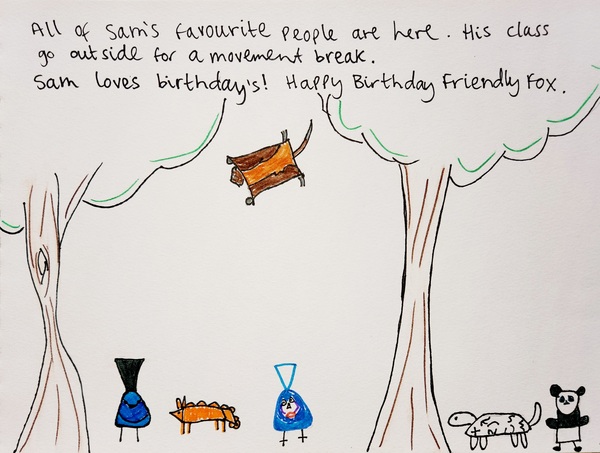 All of Sam's favourite people are here. His class
go outside for a movement break.
Sam loves birthday's! Happy Birthday Friendly Fox.